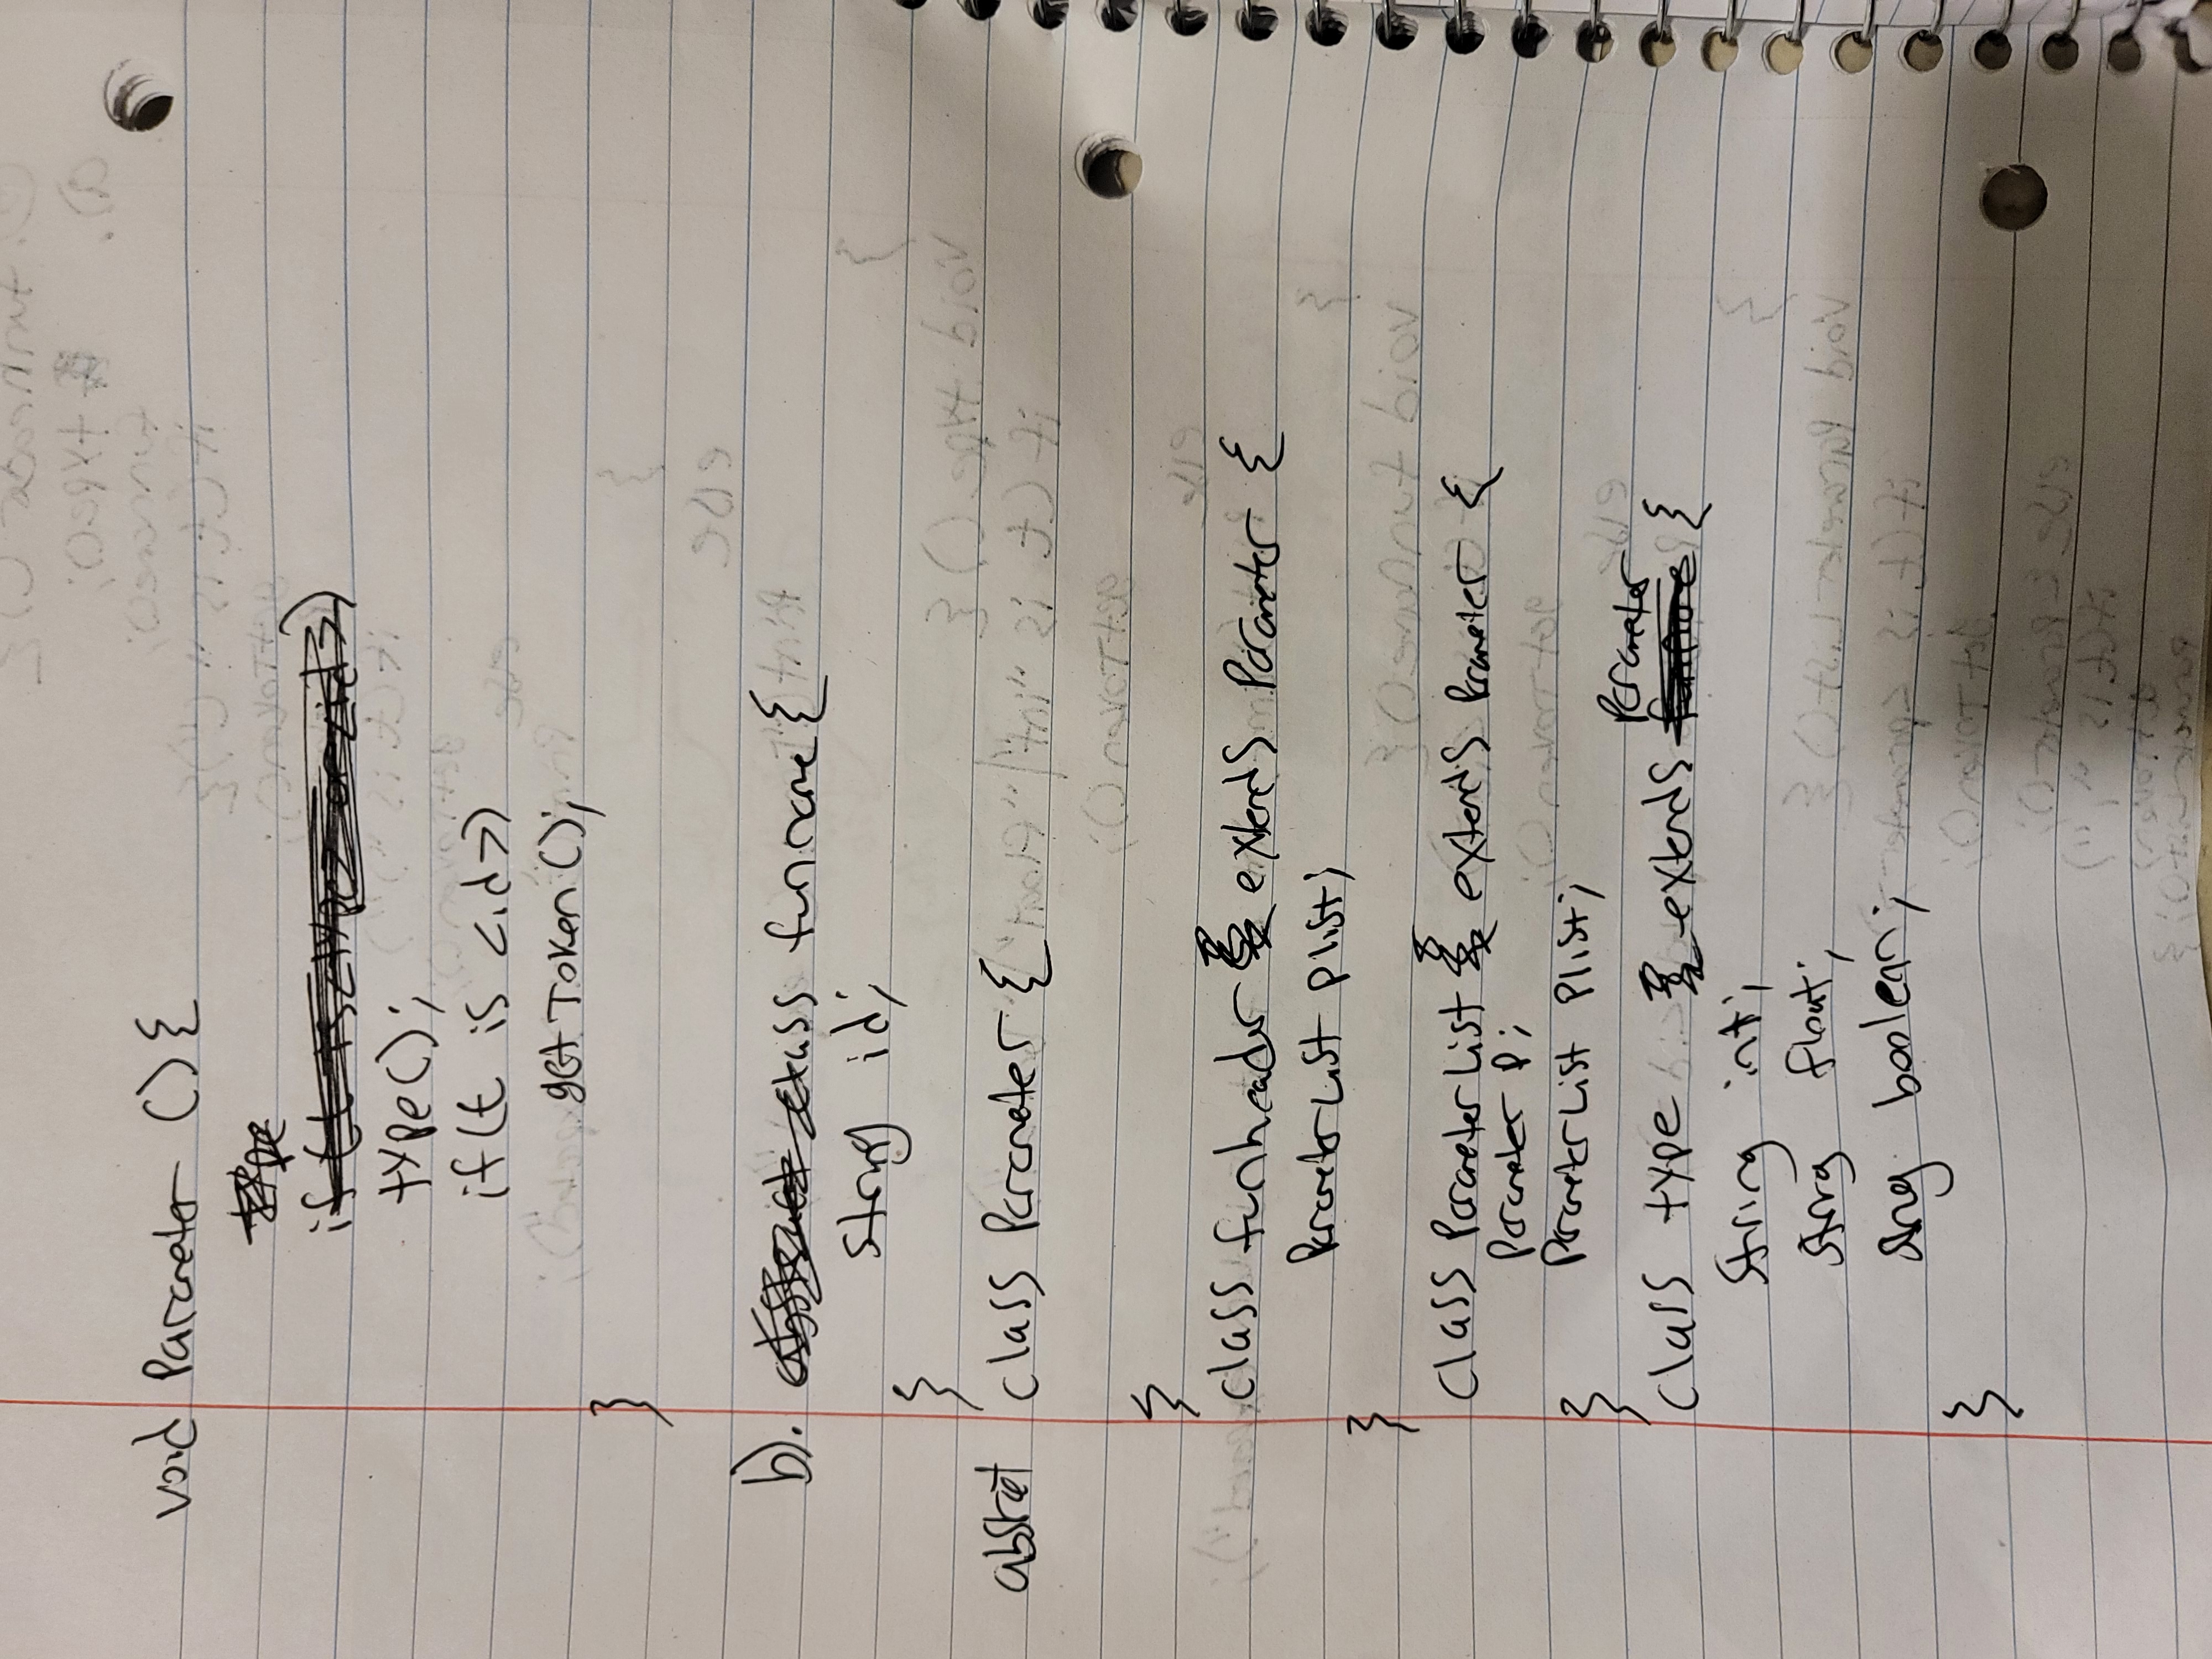 void Parameter () {
type
if (t is <type> or <id>)
type();
if (t is <id>)
getToken();
}
b). abstract class funname {
String id;
}
abstract class Parameter {
}
class funheader extends Parameter {
ParameterList plist;
}
class ParameterList extends Parameter {
Parameter p;
ParameterList plist;
}
class type extends Parameter {
String int;
String float;
String boolean;
}